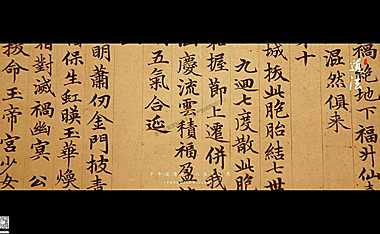 禍絶地下福升仙
混然俱来
十
城此胞胎結七世
九迴七度散此胞
握節上遷併我
慶流雲積福盈
五氣合延
明蕭仞金門披青
保生虹暎玉華煥
對滅禍幽冥 公
拔命玉帝宮少女